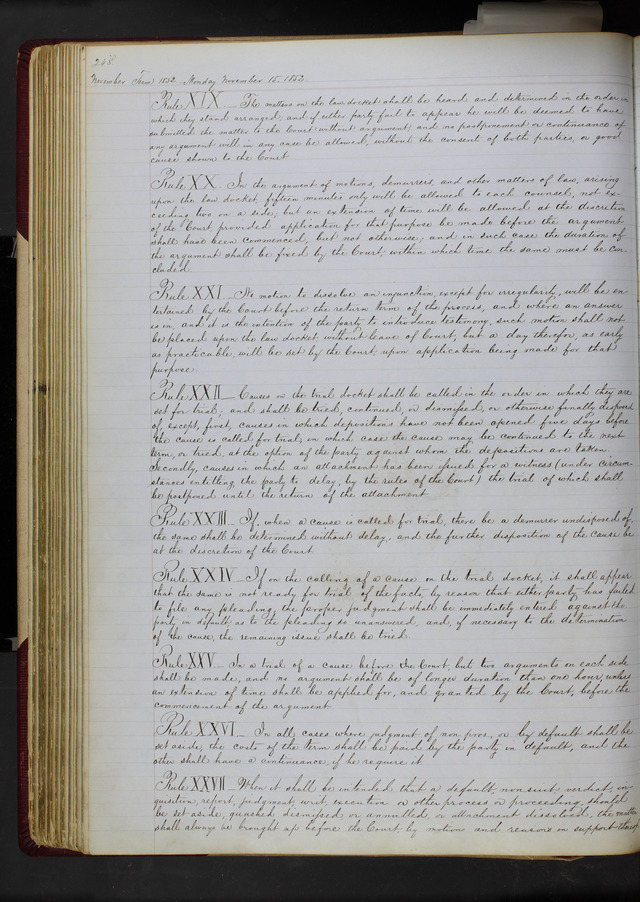 248
November Term 1852. Monday November 15. 1852
Rule XIX — The matters on the law docket shall be heard and determined in the order in
which they stand arranged; and if either party fail to appear he will be deemed to have
submitted the matter to the Court without argument; and no postponement or continuance of
any argument will in any case be allowed, without the consent of both parties, or good
cause shown to the Court
Rule XX. In the argument of motions, demurrers, and other matters of law, arising
upon the law docket, fifteen minutes only will be allowed to each counsel, not ex-
ceeding two on a side; but an extension of time will be allowed at the discretion
of the Court provided application for that purpose be made before the argument
shall have been commenced, but not otherwise; and in such case the duration of
the argument shall be fixed by the Court, within which time the same must be con-
cluded.
Rule XXI — No motion to dissolve an injunction, except for irregularity, will be en-
tertained by the Court before the return term of the process, and where an answer
is in, and it is the intention of the party to introduce testimony, such motion shall not
be placed upon the law docket without leave of Court, but a day therefor, as early
as practicable, will be set by the Court, upon application being made for that
purpose.
Rule XXII — Causes on the trial docket shall be called in the order in which they are
set for trial; and shall be tried, continued, or dismissed, or otherwise finally disposed
of, except, first, causes in which depositions have not been opened five days before
the cause is called for trial, in which case the cause may be continued to the next
term, or tried, at the option of the party against whom the depositions are taken.
Secondly, causes in which an attachment has been issued for a witness (under circum-
stances entitling the party to delay, by the rules of the Court) the trial of which shall
be postponed until the return of the attachment
Rule XXIII — If, when a cause is called for trial, there be a demurrer undisposed of,
the same shall be determined without delay, and the further disposition of the cause be
at the discretion of the Court.
Rule XXIV — If on the calling of a cause on the trial docket, it shall appear
that the same is not ready for trial of the facts, by reason that either party has failed
to file any pleading, the proper judgment shall be immediately entered against the
party in default, as to the pleading so unanswered, and, if necessary to the determination
of the cause, the remaining issue shall be tried.
Rule XXV — In a trial of a cause before the Court, but two arguments on each side
shall be made, and no argument shall be of longer duration than one hour, unless
an extension of time shall be applied for, and granted by the Court, before the
commencement of the argument
Rule XXVI — In all cases where judgment of non pros., or by default shall be
set aside, the costs of the term shall be paid by the party in default, and the
other shall have a continuance, if he require it
Rule XXVII — When it shall be intended that a default, nonsuit verdict, in-
quisition, report, judgment, writ, execution or other process or proceeding, should
be set aside, quashed dismissed or annulled, or attachment dissolved, the matter
shall always be brought up before the Court by motion and reasons in support thereof